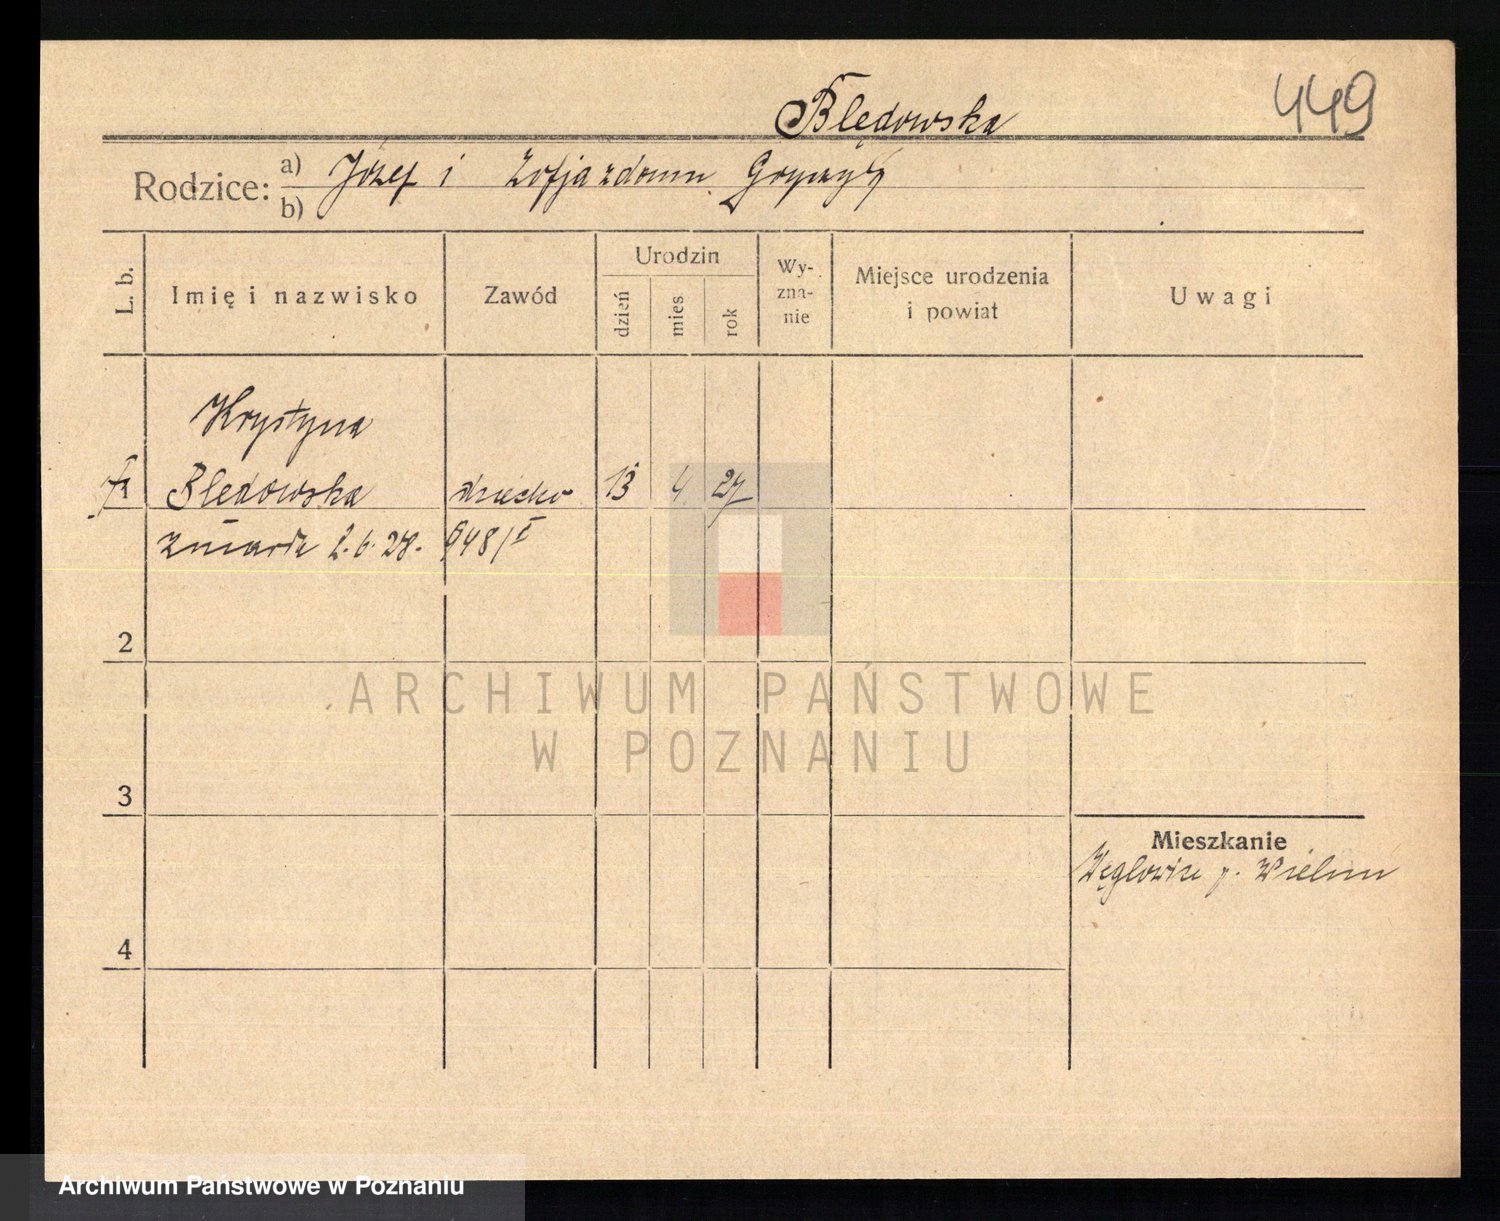 Błędowska
449
Rodzice: a) Józef i Zofja z domu
b)
L. b.
Imię i nazwisko
Zawód
Urodzin
dzień
mies
rok
Wy-
zna-
nie
Miejsce urodzenia
i powiat
Uwagi
Krystyna
1 Błedowska dziecko 13 4 27
zmarła 2.6.28. 948/I
2
3
4
Mieszkanie
Węglowice p. Wieluń
ARCHIWUM PAŃSTWOWE
W POZNANIU
Archiwum Państwowe w Poznaniu